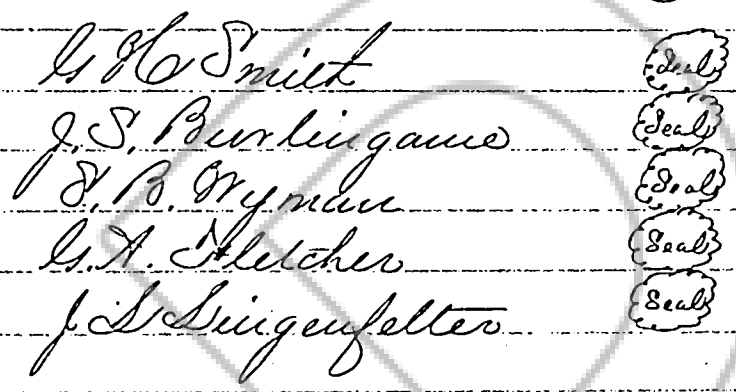 G H Smith Seal
J. S. Burlingame Seal
S. B. Wyman Seal
G. A. Fletcher Seal
J L Lingenfelter Seal